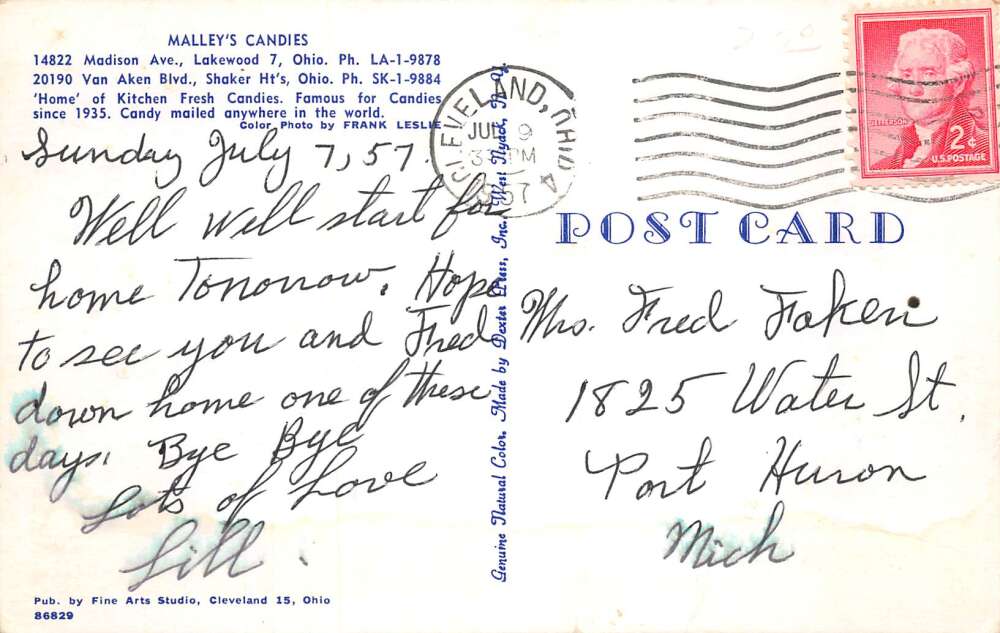 MALLEY'S CANDIES
14822 Madison Ave., Lakewood 7, Ohio. Ph. LA-1-9878
20190 Van Aken Blvd., Shaker Ht's, Ohio. Ph. SK-1-9884
'Home' of Kitchen Fresh Candies. Famous for Candies
since 1935. Candy mailed anywhere in the world.
Color Photo by FRANK LESLIE
Sunday July 7, 57.
Well will start for
home Tomorrow. Hope
to see you and Fred
down home one of these
days. Bye Bye
Lots of Love
Lill.
Pub. by Fine Arts Studio, Cleveland 15, Ohio
86829
Genuine Natural Color. Made by Dexter Press, Inc. West Nyack, N.Y.
CLEVELAND, OHIO 4
9
PM
1957
JEFFERSON
2¢
U.S. POSTAGE
POST CARD
Mrs. Fred Faken
1825 Water St.
Port Huron
Mich